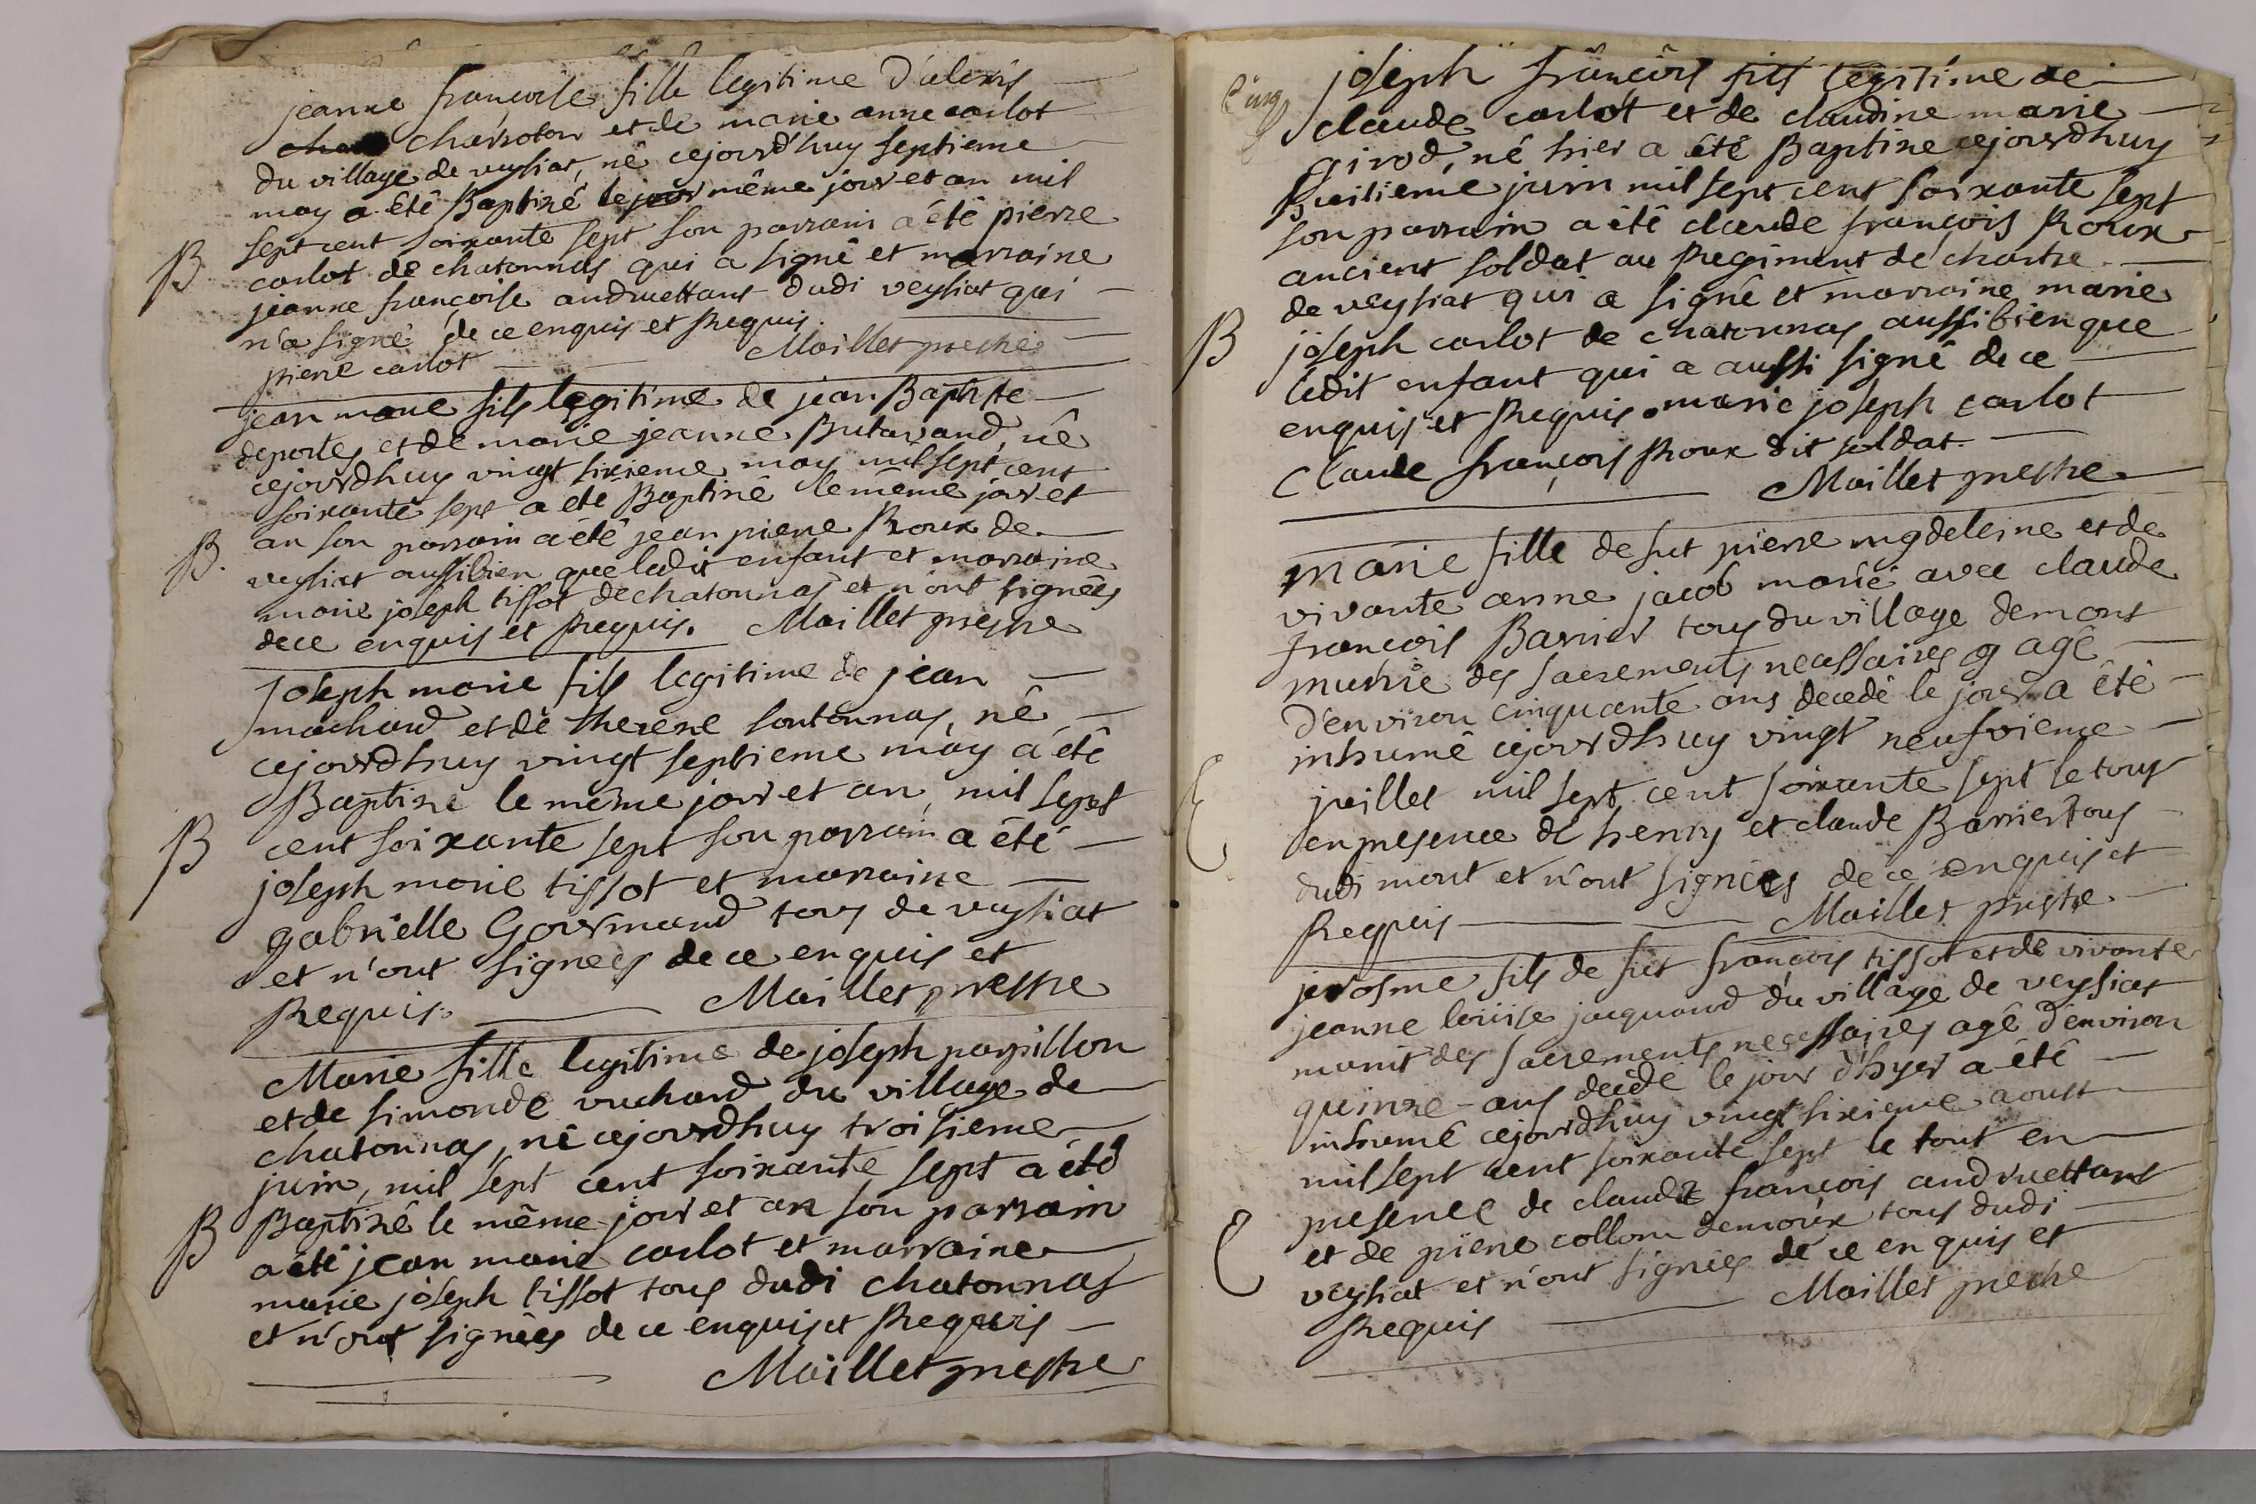 jeanne françoise fille legitime d'alexis
charroton et de marie anne carlot
du village de veysiat, né cejourd'huy septieme
may a été Baptizé le même jour et an mil
sept cent soixante sept son parrain a été pierre
carlot de chatonnas qui a signé et marraine
jeanne françoise andruettant dudi veysiat qui
n'a signé de ce enquis et Requis.
pierre carlot Maillet prestre
jean marie fils legitime de jean Baptiste
deportes et de marie jeanne Butavand, né
cejourdhuy vingt sixieme may mil sept cent
soixante sept a été Baptizé le même jour et
B. an son parrain a été jean pierre Roux de
veysiat aussibien que ledit enfant et marraine
marie joseph tissot de chatonnas et n'ont signées
de ce enquis et Requis. Maillet prestre
Joseph marie fils legitime de jean
machard et de therese soutonnas, né
cejourdhuy vingt septieme may a été
Baptize le même jour et an, mil sept
B cent soixante sept son parrain a été
joseph marie tissot et marraine
gabrielle Gourmand tous de veysiat
et n'ont signées de ce enquis et
Requis. Maillet prestre
Marie fille legitime de joseph papillon
et de simonde vuchard du village de
chatonnas, né cejourdhuy troisieme
juin, mil sept cent soixante sept a été
B Baptizé le même jour et an son parrain
a été jean marie carlot et marraine
marie joseph tissot tous dudi chatonnas
et n'ont signées de ce enquis et Requis
Maillet prestre
joseph françois fils legitime de
claude carlot et de claudine marie
girod, né hier a été Baptize cejourdhuy
huitieme juin mil sept cent soixante sept
son parrain a été claude françois Roux
ancient soldat au Regiment de chartre
de veysiat qui a signé et marraine marie
B joseph carlot de chatonnas aussibien que
ledit enfant qui a aussi signé de ce
enquis et Requis. marie joseph carlot
Claude françois Roux dit soldat.
Maillet prestre
Marie fille de fut pierre mgdeleine et de
vivante anne jacob marié avec claude
françois Barrier tous du village de mont
munie des sacrements necessaires agé
d'environ cinquante ans decedé le jour a été
inhumé cejourdhuy vingt neufvieme
juillet mil sept cent soixante sept le tout
en presence de henry et claude Barrier tous
dudi mont et n'ont signées de ce enquis et
Requis Maillet prestre
jerosme fils de fut françois tissot et de vivante
jeanne louise jacquand du village de veysiat
munit des sacrements necessaires agé d'environ
quinze ans decédé le jour d'hyer a été
inhumé cejourdhuy vingt sixieme aoust
mil sept cent soixante sept le tout en
presence de claude françois andruettant
et de pierre collom demoux tous dudi
veysiat et n'ont signées de ce enquis et
Requis Maillet prestre